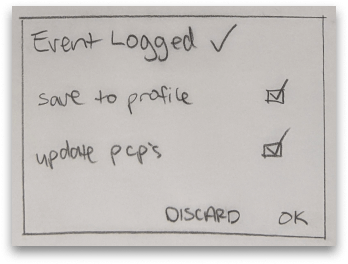 Event Logged ✓
save to profile ☑
update pcp's ☑
DISCARD OK